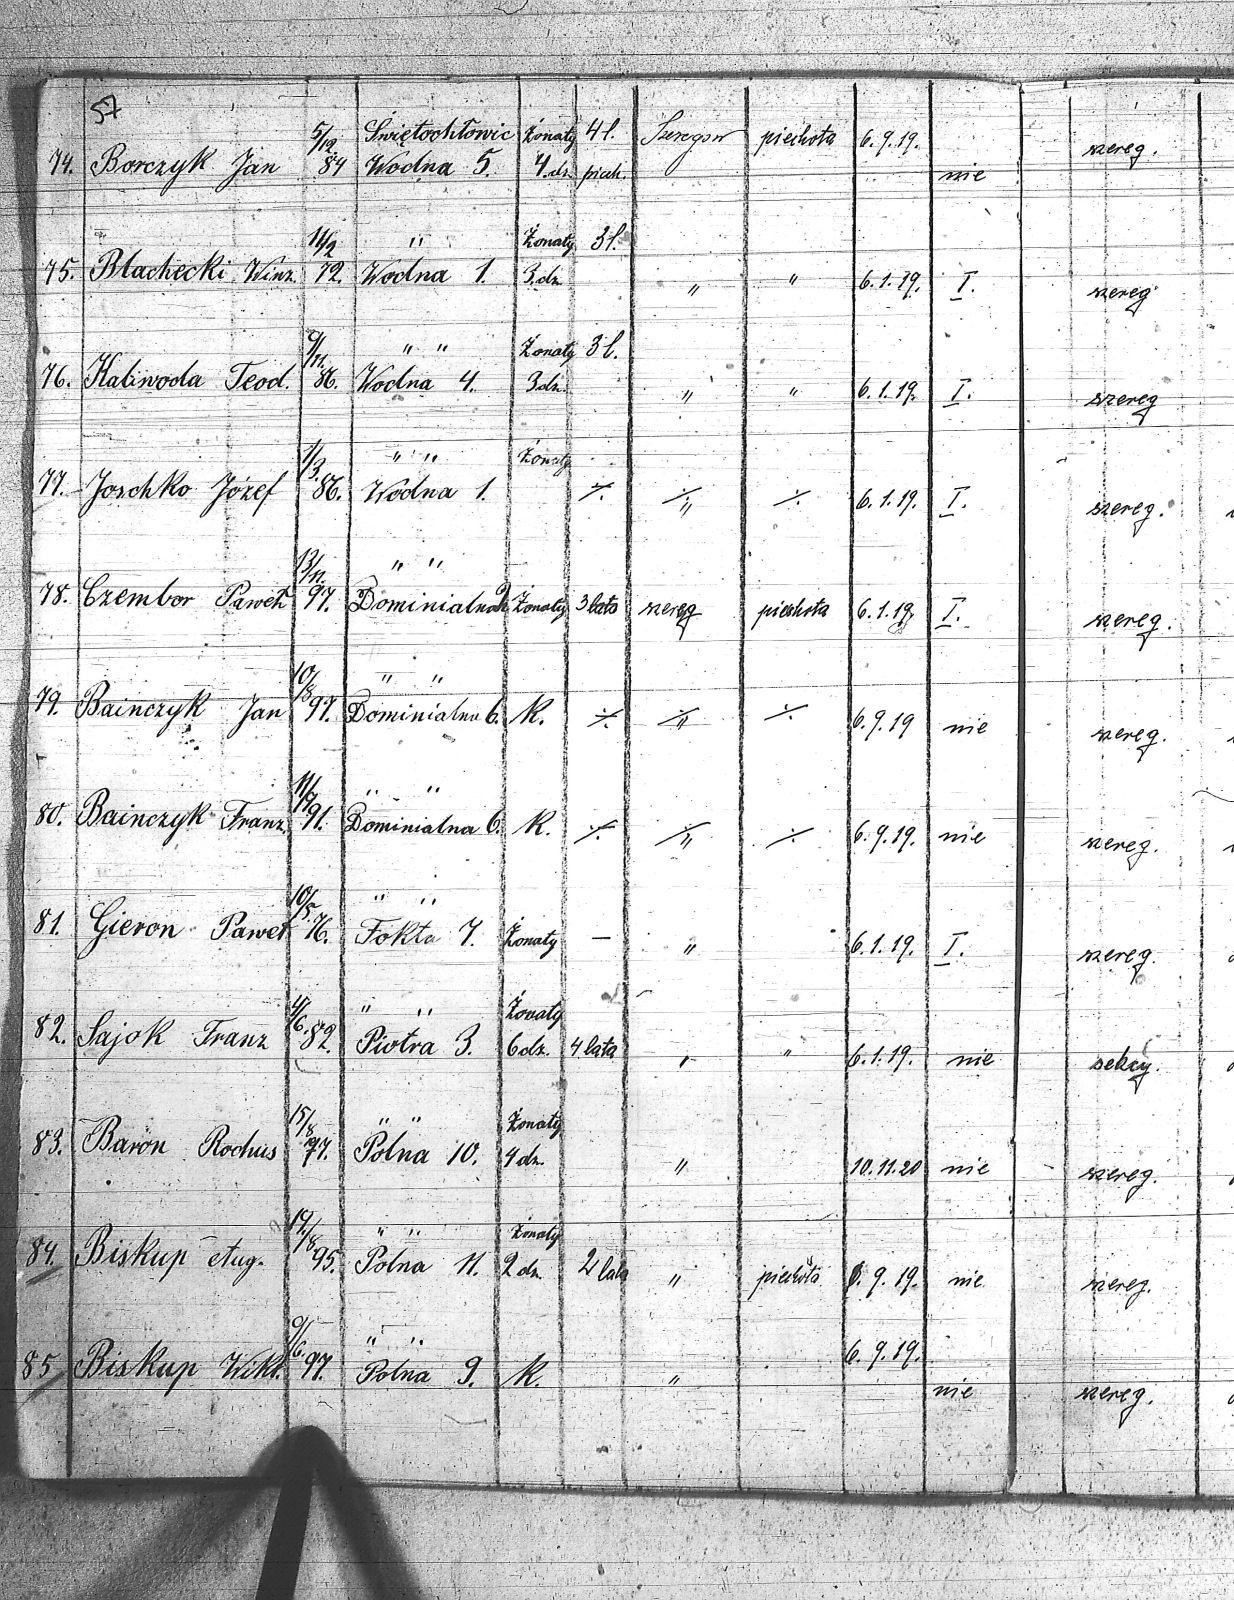 57
5/12 Świętochłowic Żonaty 4 l. Szeregow piechota 6.9.19. szereg.
74. Borczyk Jan 84 Wodna 5. 4.dz. piech. nie
11/2 " Żonaty 3 l.
75. Blachecki Winz. 72. Wodna 1. 3.dz. " " 6.1.19. I. szereg
9/11. " " Żonaty 3 l.
76. Kaliwoda Teod. 86. Wodna 4. 3 dz. " " 6.1.19. I. szereg
1/3. " " Żonaty
77. Joschko Józef 86. Wodna 1. ./. ./. " ./. 6.1.19. I. szereg.
13/11. " "
78. Czembor Paweł 97. Dominialna Żonaty 3 lata szereg piechota 6.1.19. I. szereg.
10/8 " "
79. Bainczyk Jan 97. Dominialna 6. K. ./. ./. " ./. 6.9.19 nie szereg.
11/7 " "
80. Bainczyk Franz. 91. Dominialna 6. K. ./. ./. " ./. 6.9.19. nie szereg.
10/5. " "
81. Gieron Paweł 76. Fokta 7. Żonaty — " 6.1.19. I. szereg.
4/6. " " Żonaty
82. Sajok Franz 82. Piotra 3. 6 dz. 4 lata " " 6.1.19. nie sekcy.
15/8 " " Żonaty
83. Baron Rochus 77. Polna 10. 4 dz. " 10.11.20 nie szereg.
19/8 " " Żonaty
84. Biskup Aug. 95. Polna 11. 2 dz. 2 lata " piechota 6.9.19. nie szereg.
9/6. " " 6.9.19.
85 Biskup Wikt. 97. Polna 9. K. " nie szereg.